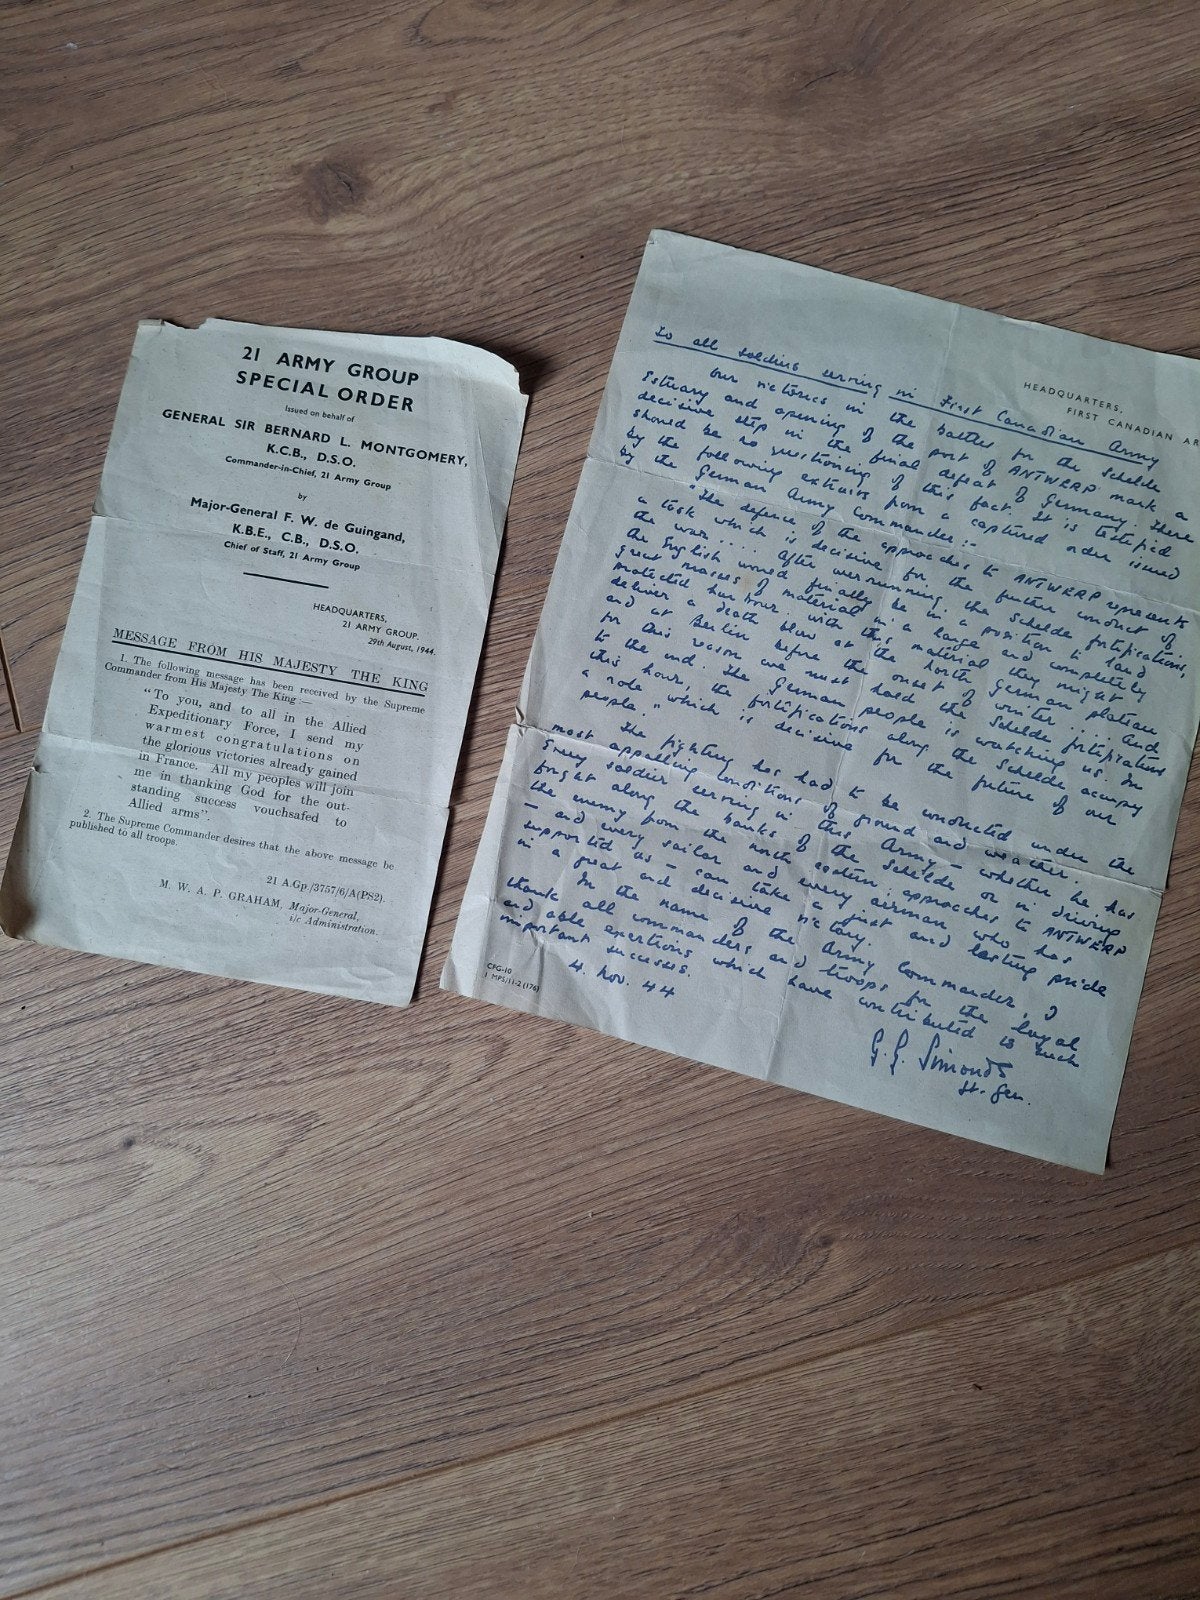 21 ARMY GROUP
SPECIAL ORDER
Issued on behalf of
GENERAL SIR BERNARD L. MONTGOMERY,
K.C.B., D.S.O.
Commander-in-Chief, 21 Army Group
by
Major-General F. W. de Guingand,
K.B.E., C.B., D.S.O.
Chief of Staff, 21 Army Group
HEADQUARTERS,
21 ARMY GROUP.
29th August, 1944.
MESSAGE FROM HIS MAJESTY THE KING
1. The following message has been received by the Supreme
Commander from His Majesty The King :—
"To you, and to all in the Allied
Expeditionary Force, I send my
warmest congratulations on
the glorious victories already gained
in France. All my peoples will join
me in thanking God for the out-
standing success vouchsafed to
Allied arms".
2. The Supreme Commander desires that the above message be
published to all troops.
21 A.Gp./3757/6/A(PS2).
M. W. A. P. GRAHAM, Major-General,
i/c Administration.
HEADQUARTERS,
FIRST CANADIAN AR
To all soldiers serving in First Canadian Army
Our victories in the battles for the Schelde
Estuary and opening of the port of ANTWERP mark a
decisive step in the final defeat of Germany. There
should be no questioning of this fact. It is testified
by the following extracts from a captured order issued
by the German Army Commander:-
"The defence of the approaches to ANTWERP represents
a task which is decisive for the further conduct of
the war.... After overrunning the Schelde fortifications,
the English would finally be in a position to land
great masses of material in a large and completely
protected harbour. With this material they might
deliver a death blow at the North German plateau
and at Berlin before the onset of winter.... And
for this reason we must hold the Schelde fortifications
to the end. The German people is watching us. In
this hour, the fortifications along the Schelde occupy
a role which is decisive for the future of our
people."
The fighting has had to be conducted under the
most appalling conditions of ground and weather.
Every soldier serving in this Army - whether he has
fought along the banks of the Schelde or in driving
the enemy from the north eastern approaches to ANTWERP
- and every sailor and every airman who has
supported us - can take a just and lasting pride
in a great and decisive victory.
In the name of the Army Commander, I
thank all commanders and troops for the loyal
and able exertions which have contributed to such
important successes.
4. Nov. 44
G. G. Simonds
Lt. Gen.
CFG-10
1 MPS/11-2 (176)